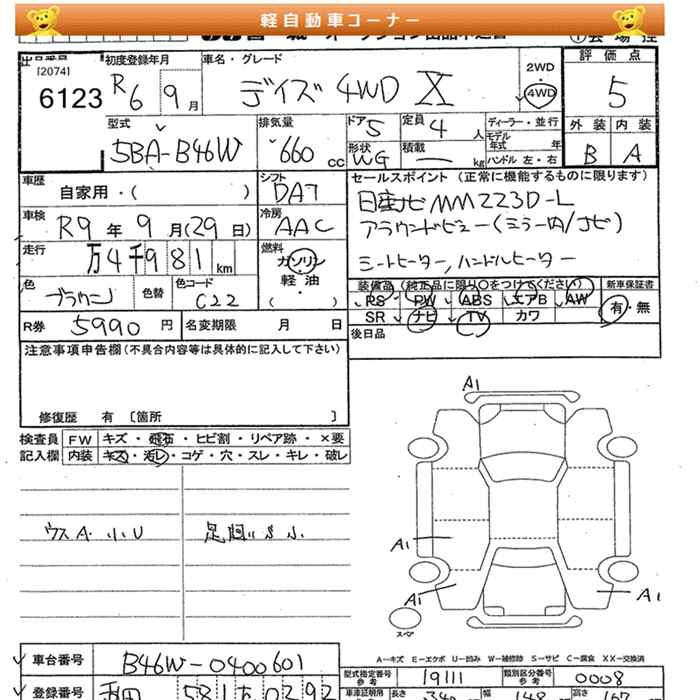 軽自動車コーナー
出品番号 [2074] 6123
初度登録年月 R6 9月
車名・グレード デイズ 4WD X
2WD・4WD
評価点 5
外装 B 内装 A
型式 5BA-B46W
排気量 660 cc
ドア 5 定員 4人
形状 WG 積載 — kg
ディーラー・並行
モデル年式 年
ハンドル 左・右
車歴 自家用・( )
シフト DAT
車検 R9年9月(29日)
冷房 AAC
走行 万4千981km
燃料 ガソリン・軽油・( )
色 ブラウン 色替 色コード C22
R券 5990円 名変期限 月 日
セールスポイント(正常に機能するものに限ります)
日産ナビ MM223D-L
アラウンドビュー(ミラー内/ナビ)
シートヒーター, ハンドルヒーター
装備品(純正品に限り○をつけてください) 新車保証書
PS PW ABS エアB AW 有・無
SR ナビ TV カワ
後日品
注意事項申告欄(不具合内容等は具体的に記入して下さい)
修復歴 有〔箇所 〕
検査員記入欄
FW キズ・飛石・ヒビ割・リペア跡・×要
内装 キズ・汚レ・コゲ・穴・スレ・キレ・破レ
ウスA・小U
足廻り S小
A1
A1
A1
A1
スペア
A-キズ E-エクボ U-凹み W-補修跡 S-サビ C-腐食 XX-交換済
車台番号 B46W-0400601
型式指定番号参考 19111 類別区分番号参考 0008
登録番号 581 0292
長さ 幅 148 高さ